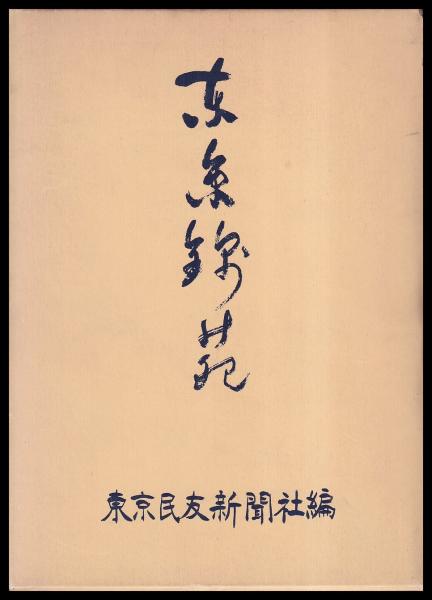 东京錦苑
東京民友新聞社編